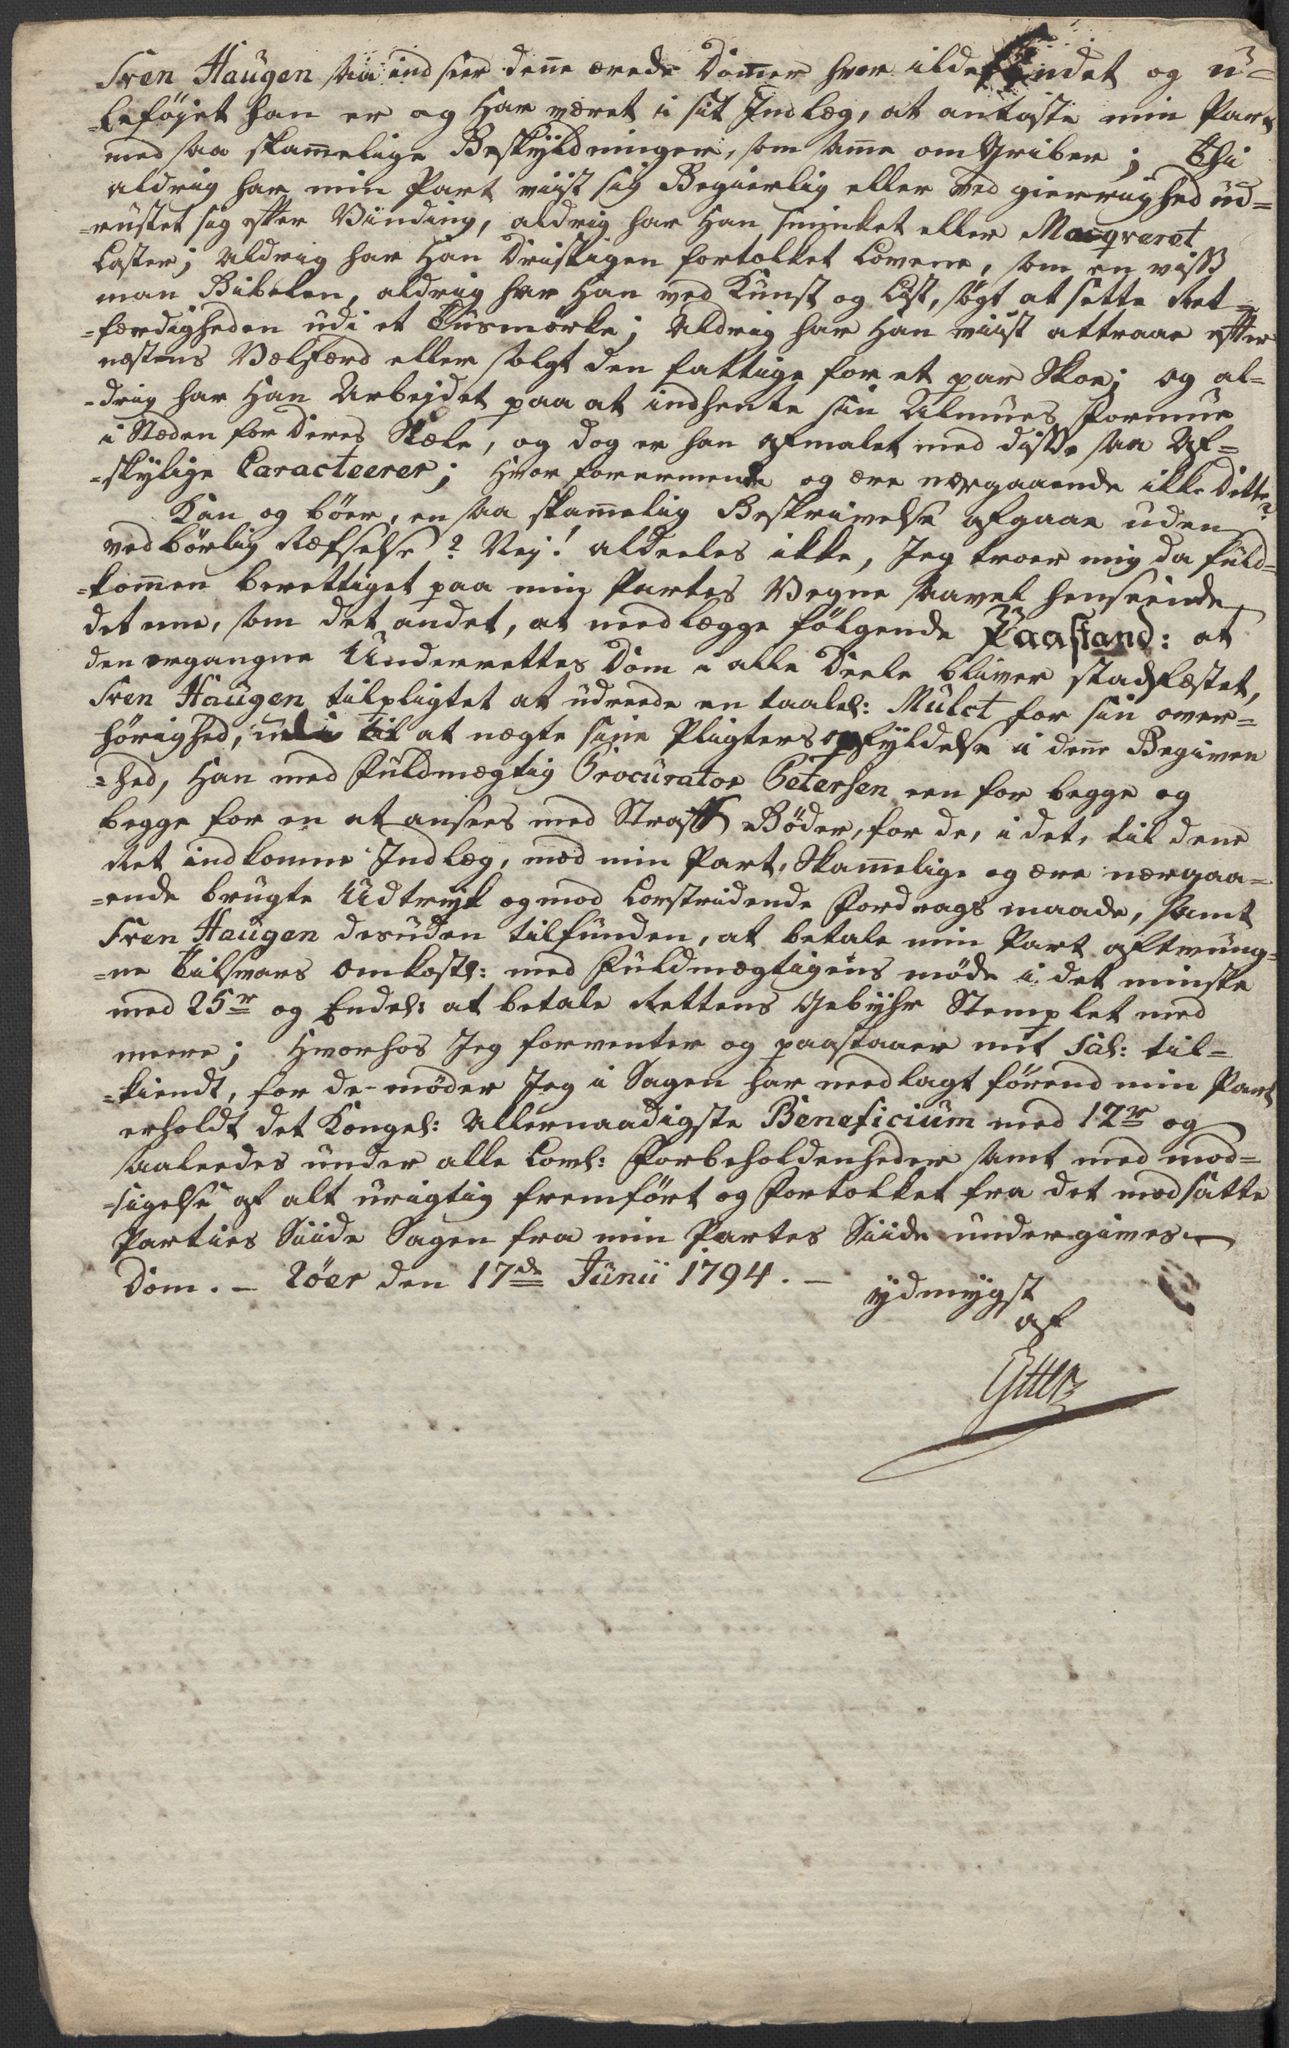 Sven Haugen saa indseer denne ærede Dommer hvor ildesindet og u-
-beføjet han er og har været i sit Indlæg, at antaste min Part
med saa skammelige Beskyldninger, som samme omgriber; Thi
aldrig har min Part viist sig Begierlig eller ved gierrighed ud-
-rustet sig efter Vinding, aldrig har Han sminket eller Masqveret
Laster; Aldrig har Han Dristigen fortolket Lovene, som en viss
man Bibelen, aldrig har Han ved Kunst og List, søgt at sette Ret-
-færdigheden udi et Tusmørke; Aldrig har Han viist attraae efter
næstens Velfærd eller solgt den fattige for et par Skoe; og al-
-drig har Han Arbejdet paa at indhente sin Almues Formue
i Stæden for Deres Siæle, og dog er han afmalet med disse saa Af-
-skylige Caracteerer; Hvor forermende og ære nærgaaende ikke Dette?
Kan og bøer, en saa skammelig Beskrivelse afgaae uden
vedbørlig Refselse? Nej! aldeeles ikke, Jeg troer mig da fuld-
-kommen berettiget paa min Partes Vegne saavel henseende
det ene, som det andet, at nedlægge følgende Paastand: at
den ergangne Underrettes Dom i alle Deele bliver stadfæstet,
Sven Haugen tilpligtet at udreede en taalel: Mulct for sin over-
hørighed, at nægte sine Pligters opfyldelse i denne Begiven
-hed, Han med Fuldmægtig Procurator Petersen een for begge og
begge for en at ansees med Straff Bøder, for de, i det, til denne
Ret indkomne Indlæg, mod min Part, Skammelige og ære nærgaa-
-ende brugte Udtryk og mod Lovstridende Fordrags maade, samt
Sven Haugen desuden tilfunden, at betale min Part aftvung-
-ne Tilsvars Omkostn: med Fuldmægtigens møde i det minste
med 25 r og Endel: at betale Rettens Gebyhr Stemplet med
meere; Hvorhos Jeg forventer og paastaaer mit Sal: til-
-kiendt, for de møder Jeg i Sagen har nedlagt førend min Part
erholdt det Kongel: Allernaadigste Beneficium med 12 r og
saaleedes under alle Lovl: Forbeholdenheder samt med mod-
-sigelse af alt urigtig fremført og Fortolket fra det modsatte
Parties Siide Sagen fra min Partes Siide undergives
Dom. – Røer den 17de Junii 1794. –
ydmygst
af